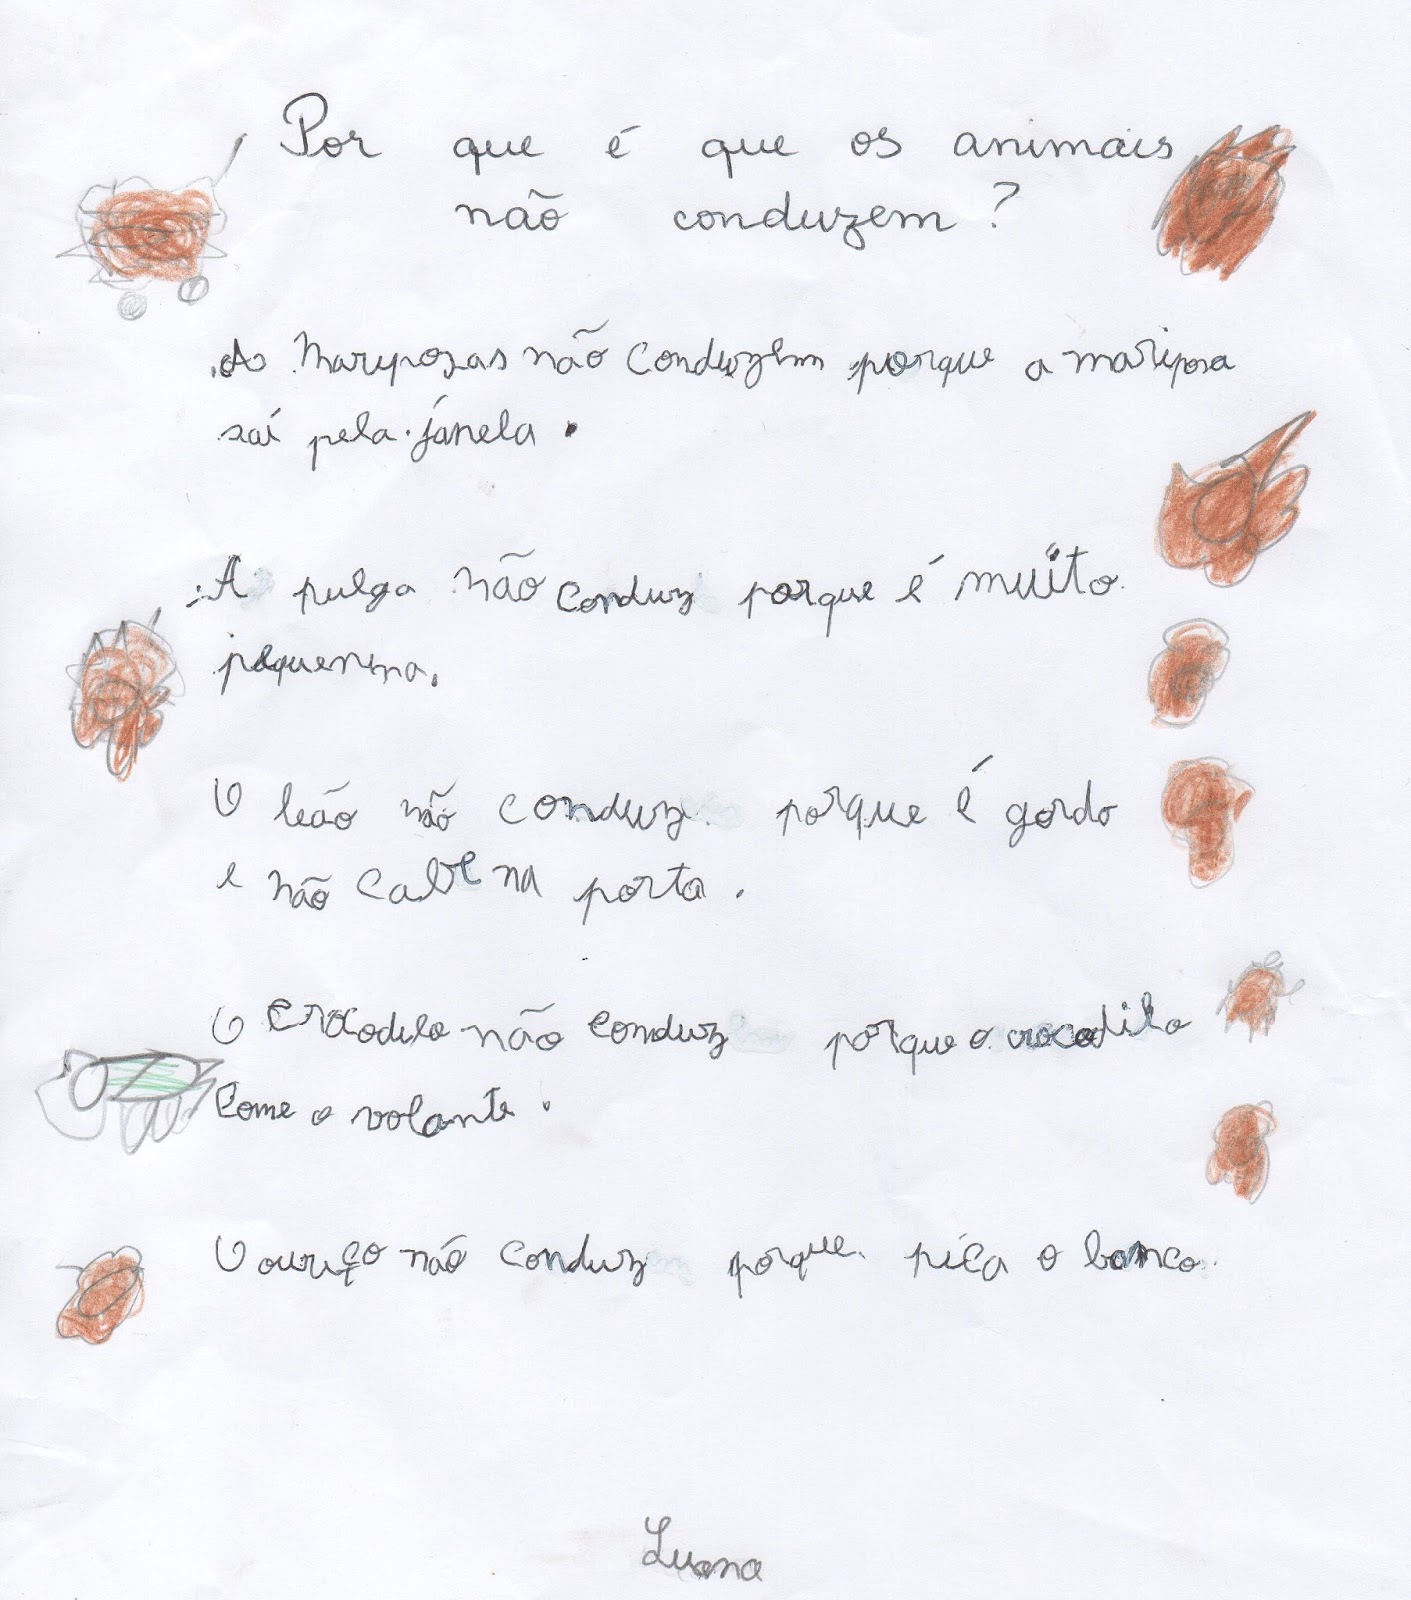 Por que é que os animais
não conduzem?
As Mariposas não conduzem porque a mariposa
saí pela jánela.
A pulga não conduz porque é muito
pequenina.
O leão não conduz porque é gordo
e não cabe na porta.
O crocodilo não conduz porque o crocodilo
come o volante.
O ouriço não conduz porque pica o banco.
Luana